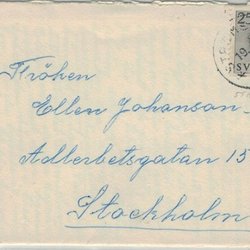 25
SV
Fröken
Ellen Johanson-
Adlerbetsgatan 15
Stockholm